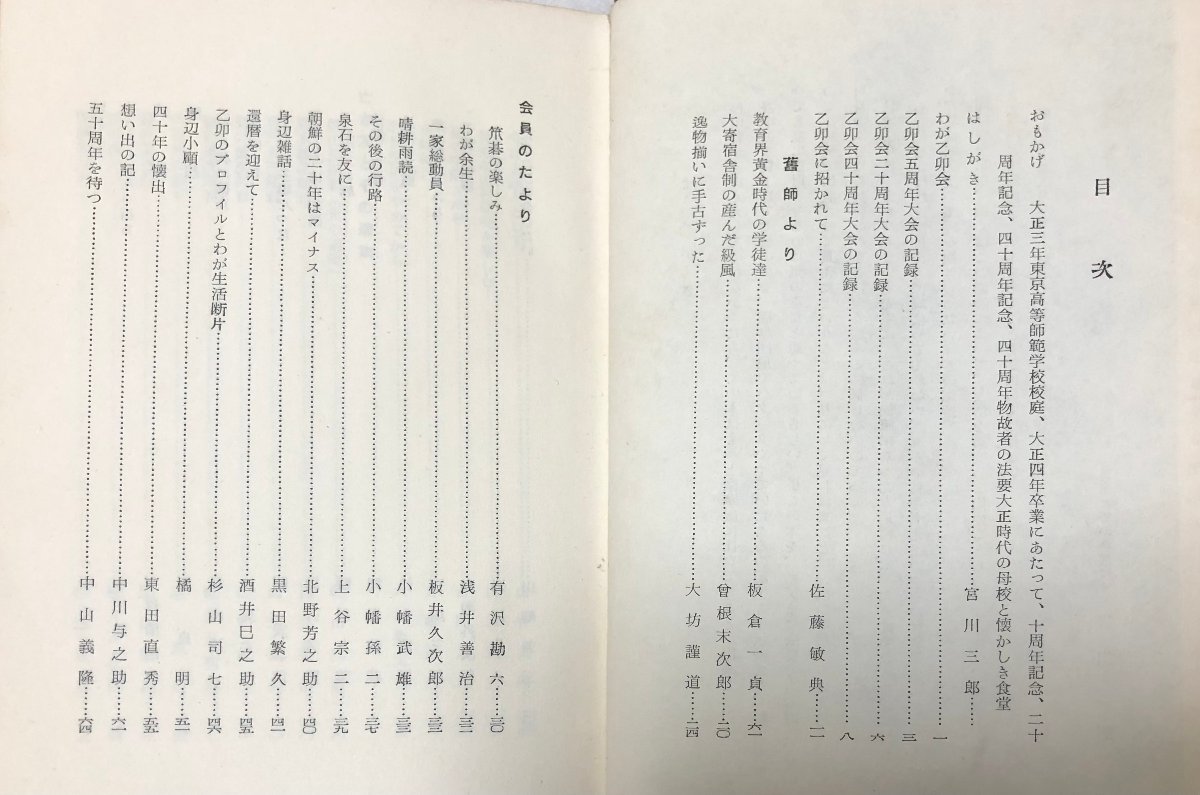 目次
おもかげ　大正三年東京高等師範学校校庭、大正四年卒業にあたって、十周年記念、二十
周年記念、四十周年記念、四十周年物故者の法要大正時代の母校と懐かしき食堂
はしがき……………宮川三郎……
わが乙卯会……………一
乙卯会五周年大会の記録……………三
乙卯会二十周年大会の記録……………六
乙卯会四十周年大会の記録……………八
乙卯会に招かれて……………佐藤敏典……一二
舊師より
教育界黄金時代の学徒達……………板倉一貞……
大寄宿舎制の産んだ級風……………曾根末次郎……二〇
逸物揃いに手古ずった……………大坊謹道……二四
会員のたより
笊碁の楽しみ……………有沢勘六……三〇
わが余生……………浅井善治……三二
一家総動員……………板井久次郎……三三
晴耕雨読……………小幡武雄……三三
その後の行路……………小幡孫二……三七
泉石を友に……………上谷宗二……三九
朝鮮の二十年はマイナス……………北野芳之助……四〇
身辺雑話……………黒田繁久……四一
還暦を迎えて……………酒井巳之助……四五
乙卯のプロフイルとわが生活断片……………杉山司七……四六
身辺小顧……………橘　明……五一
四十年の懐出……………東田直秀……五五
想い出の記……………中川与之助……六一
五十周年を待つ……………中山義隆……六四